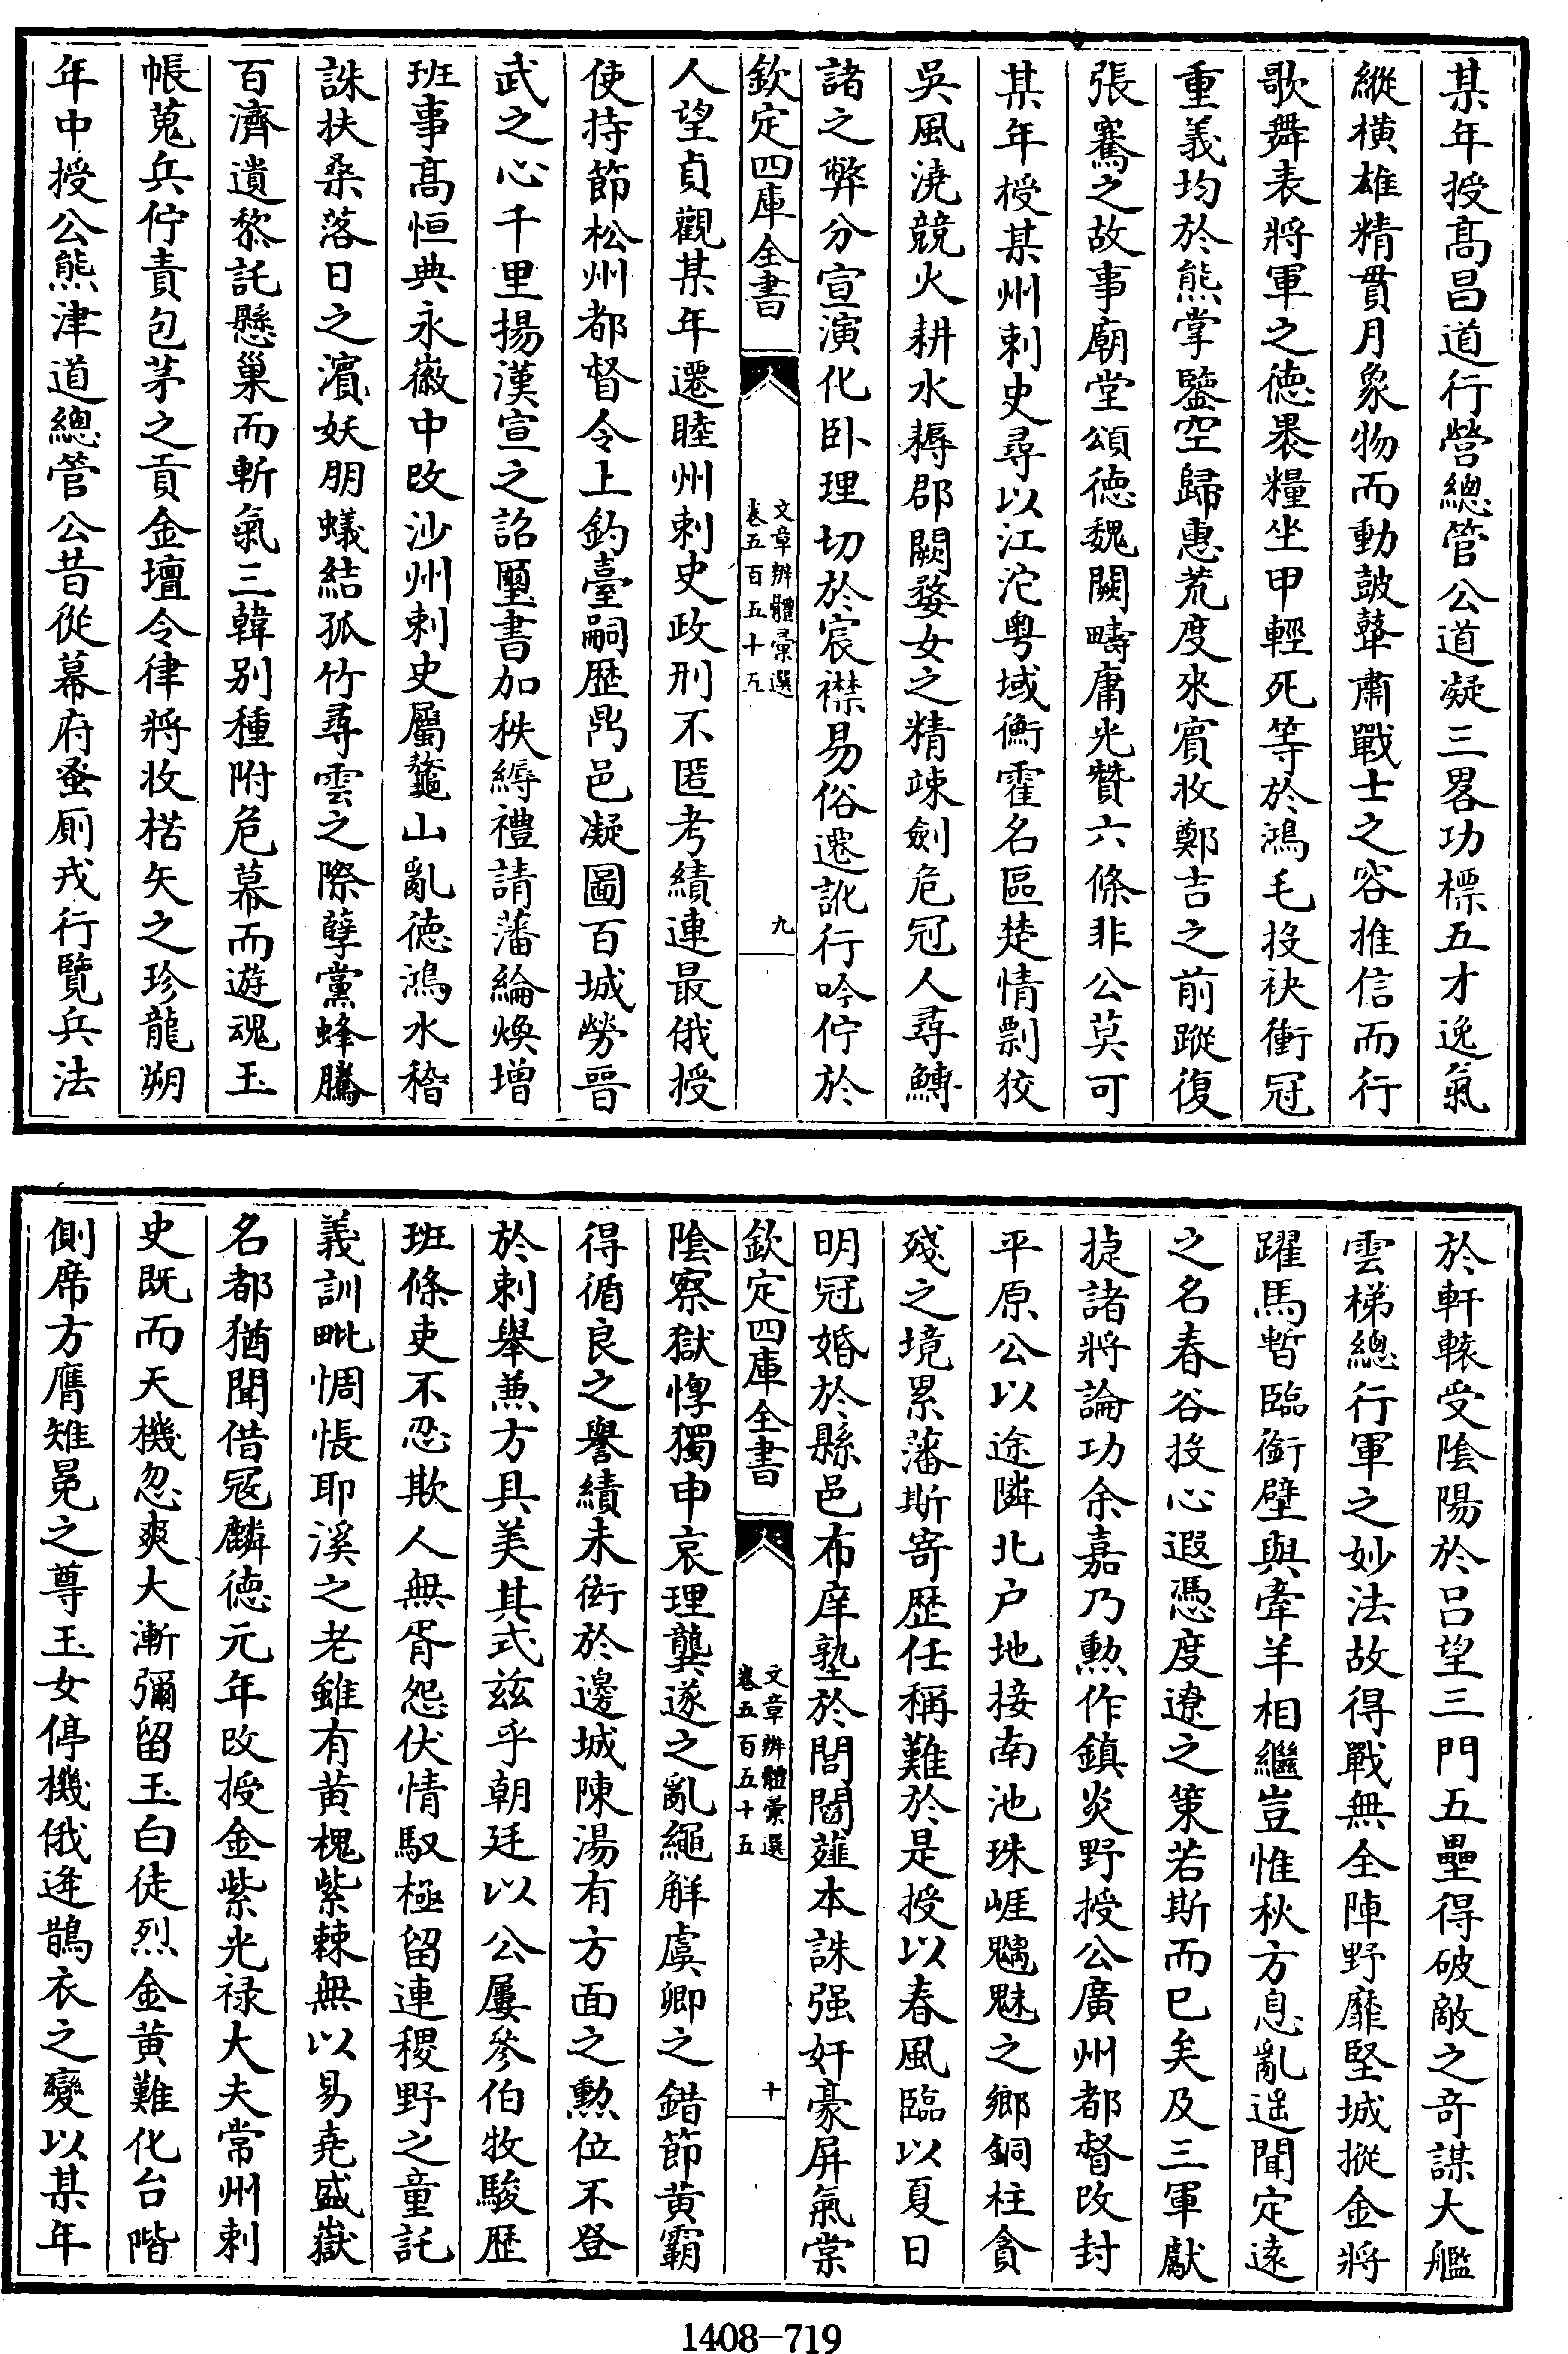 某年授髙昌道行營總管公道凝三畧功標五才逸氣
縱橫雄精貫月象物而動皷鼙肅戰士之容推信而行
歌舞表將軍之徳褁糧坐甲輕死等於鴻毛投袂衝冠
重義均於熊掌鑒空歸惠荒度來賓收鄭吉之前蹤復
張騫之故事廟堂頌徳魏闕疇庸光贊六條非公莫可
某年授某州刺史尋以江沱粤域衡霍名區楚情剽狡
吳風澆競火耕水耨郡闕婺女之精竦劍危冠人尋鱄
諸之弊分宣演化卧理切於宸襟易俗遷訛行吟佇於
欽定四庫全書
文章辨體彙選
卷五百五十五
九
人望貞觀某年遷睦州刺史政刑不匿考績連最俄授
使持節松州都督令上釣臺嗣歴鼎邑凝圖百城勞晉
武之心千里揚漢宣之詔璽書加秩縟禮請藩綸煥增
班事髙恒典永徽中改沙州刺史屬鼇山亂徳鴻水稽
誅扶桑落日之濵妖朋蟻結孤竹尋雲之際孽黨蜂騰
百濟遺黎託懸巢而斬氣三韓别種附危幕而遊魂玉
帳蒐兵佇責包茅之貢金壇令律將收楛矢之珍龍朔
年中授公熊津道總管公昔從幕府蚤厠戎行覽兵法
於軒轅受隂陽於吕望三門五壘得破敵之竒謀大艦
雲梯總行軍之妙法故得戰無全陣野靡堅城摐金將
躍馬暫臨銜璧與牽羊相繼豈惟秋方息亂遥聞定逺
之名春谷投心遐憑度遼之策若斯而已矣及三軍獻
捷諸將論功余嘉乃勲作鎮炎野授公廣州都督改封
平原公以途隣北户地接南池珠崕魑魅之鄉銅柱貪
殘之境累藩斯寄歴任稱難於是授以春風臨以夏日
明冠婚於縣邑布庠塾於閭閻薤本誅强奸豪屏氣棠
欽定四庫全書
文章辨體彙選
卷五百五十五
十
隂察獄惸獨申哀理龔遂之亂繩解虞卿之錯節黄霸
得循良之譽績未衒於邊城陳湯有方面之勲位不登
於刺舉兼方具美其式兹乎朝廷以公屢參伯牧駿歴
班條吏不忍欺人無胥怨伏情馭極留連稷野之童託
義訓毗惆悵耶溪之老雖有黄槐紫棘無以易堯盛嶽
名都猶聞借冦麟徳元年改授金紫光禄大夫常州刺
史既而天機忽爽大漸彌留玉白徒烈金黄難化台階
側席方膺雉冕之尊玉女停機俄逄鵲衣之變以某年
1408-719